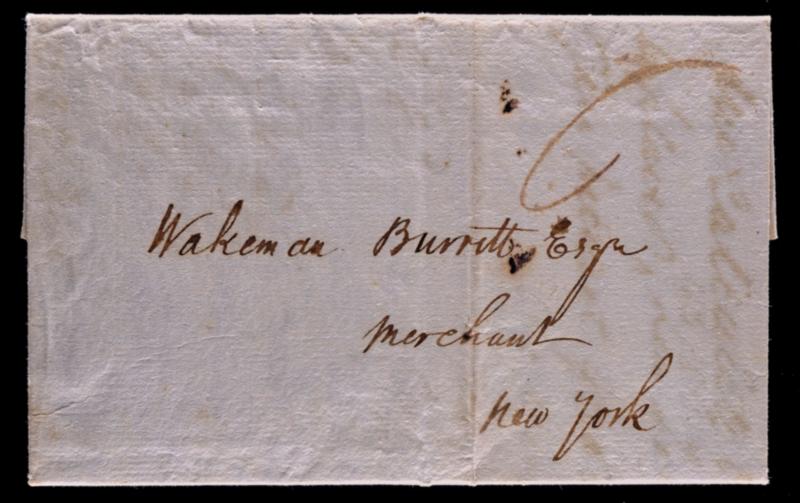 Wakeman Burritt Esqr
Merchant
New York